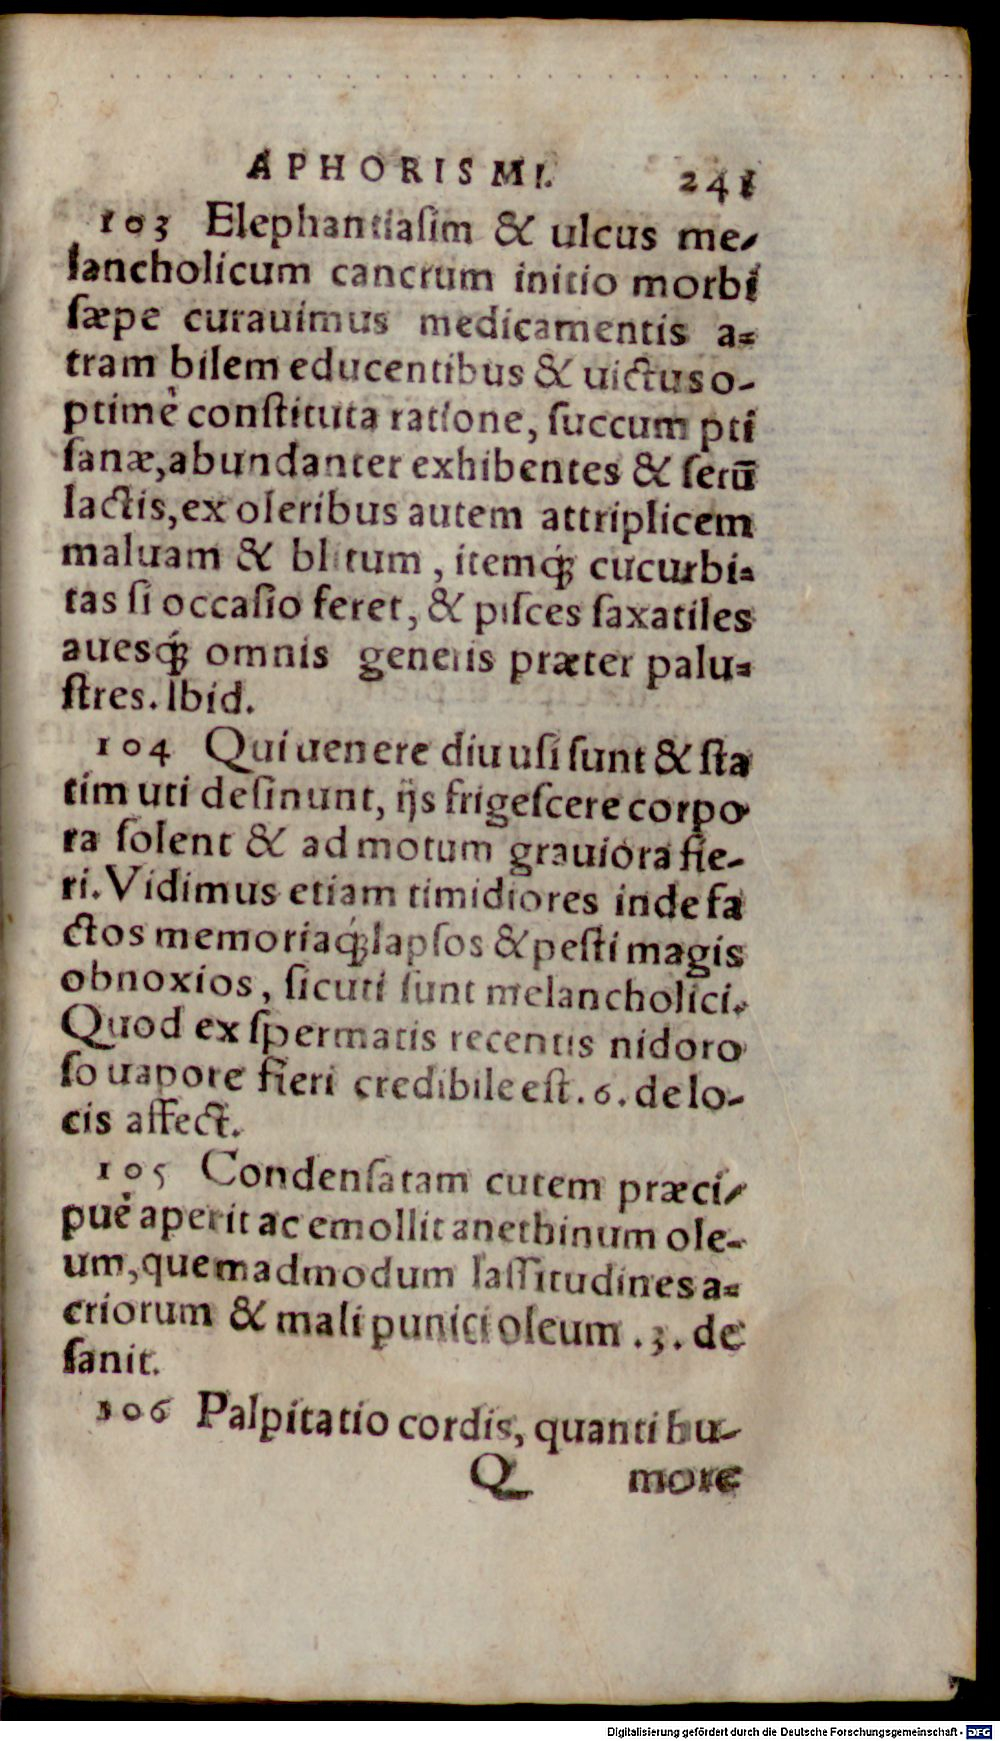 APHORISMI. 241
103 Elephantiaſim & ulcus me-
lancholicum cancrum initio morbi
ſæpe curauimus medicamentis a-
tram bilem educentibus & uictus o-
ptimè conſtituta ratione, ſuccum pti
ſanæ, abundanter exhibentes & ſerū
lactis, ex oleribus autem attriplicem
maluam & blitum, itemq́; cucurbi-
tas ſi occaſio feret, & piſces ſaxatiles
auesq́; omnis generis præter palu-
ſtres. Ibid.
104 Qui uenere diu uſi ſunt & ſta
tim uti deſinunt, ijs frigeſcere corpo
ra ſolent & ad motum grauiora fie-
ri. Vidimus etiam timidiores inde fa
ctos memoriaq́; lapſos & peſti magis
obnoxios, ſicuti ſunt melancholici.
Quod ex ſpermatis recentis nidoro
ſo uapore fieri credibile eſt. 6. de lo-
cis affect.
105 Condenſatam cutem præci-
puè aperit ac emollit anethinum ole-
um, quemadmodum laſſitudines a-
criorum & mali punici oleum. 3. de
ſanit.
106 Palpitatio cordis, quanti hu-
Q more
Digitalisierung gefördert durch die Deutsche Forschungsgemeinschaft - DFG